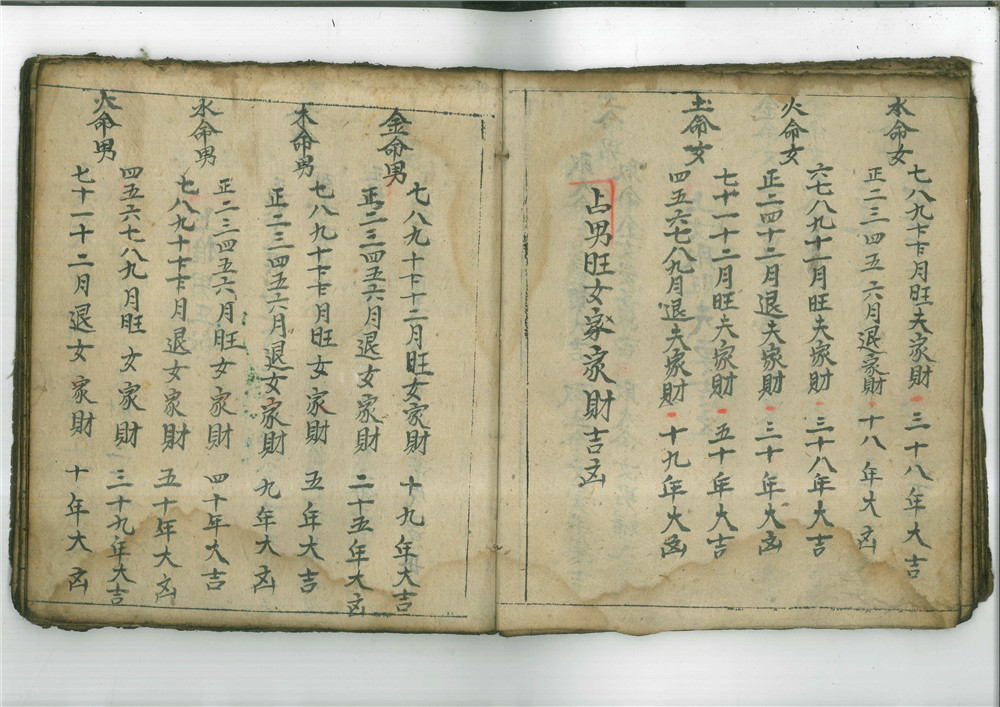 水命女
七八九十十一十二月旺夫家財 三十八年大吉
正二三四五六月退家財 十八年大凶
火命女
六七八九十十一月旺夫家財 三十八年大吉
正二四十二月退夫家財 三十年大凶
土命女
七十一十二月旺夫家財 五十年大吉
四五六七八九月退夫家財 十九年大凶
占男旺女家家財吉凶
金命男
七八九十十一十二月旺女家財 十九年大吉
正二三四五六月退女家財 二十五年大凶
木命男
七八九十十一十二月旺女家財 五年大吉
正二三四五六月退女家財 九年大凶
水命男
正二三四五六月旺女家財 四十年大吉
七八九十十一十二月退女家財 五十年大凶
火命男
四五六七八九月旺女家財 三十九年大吉
七十一十二月退女家財 十年大凶